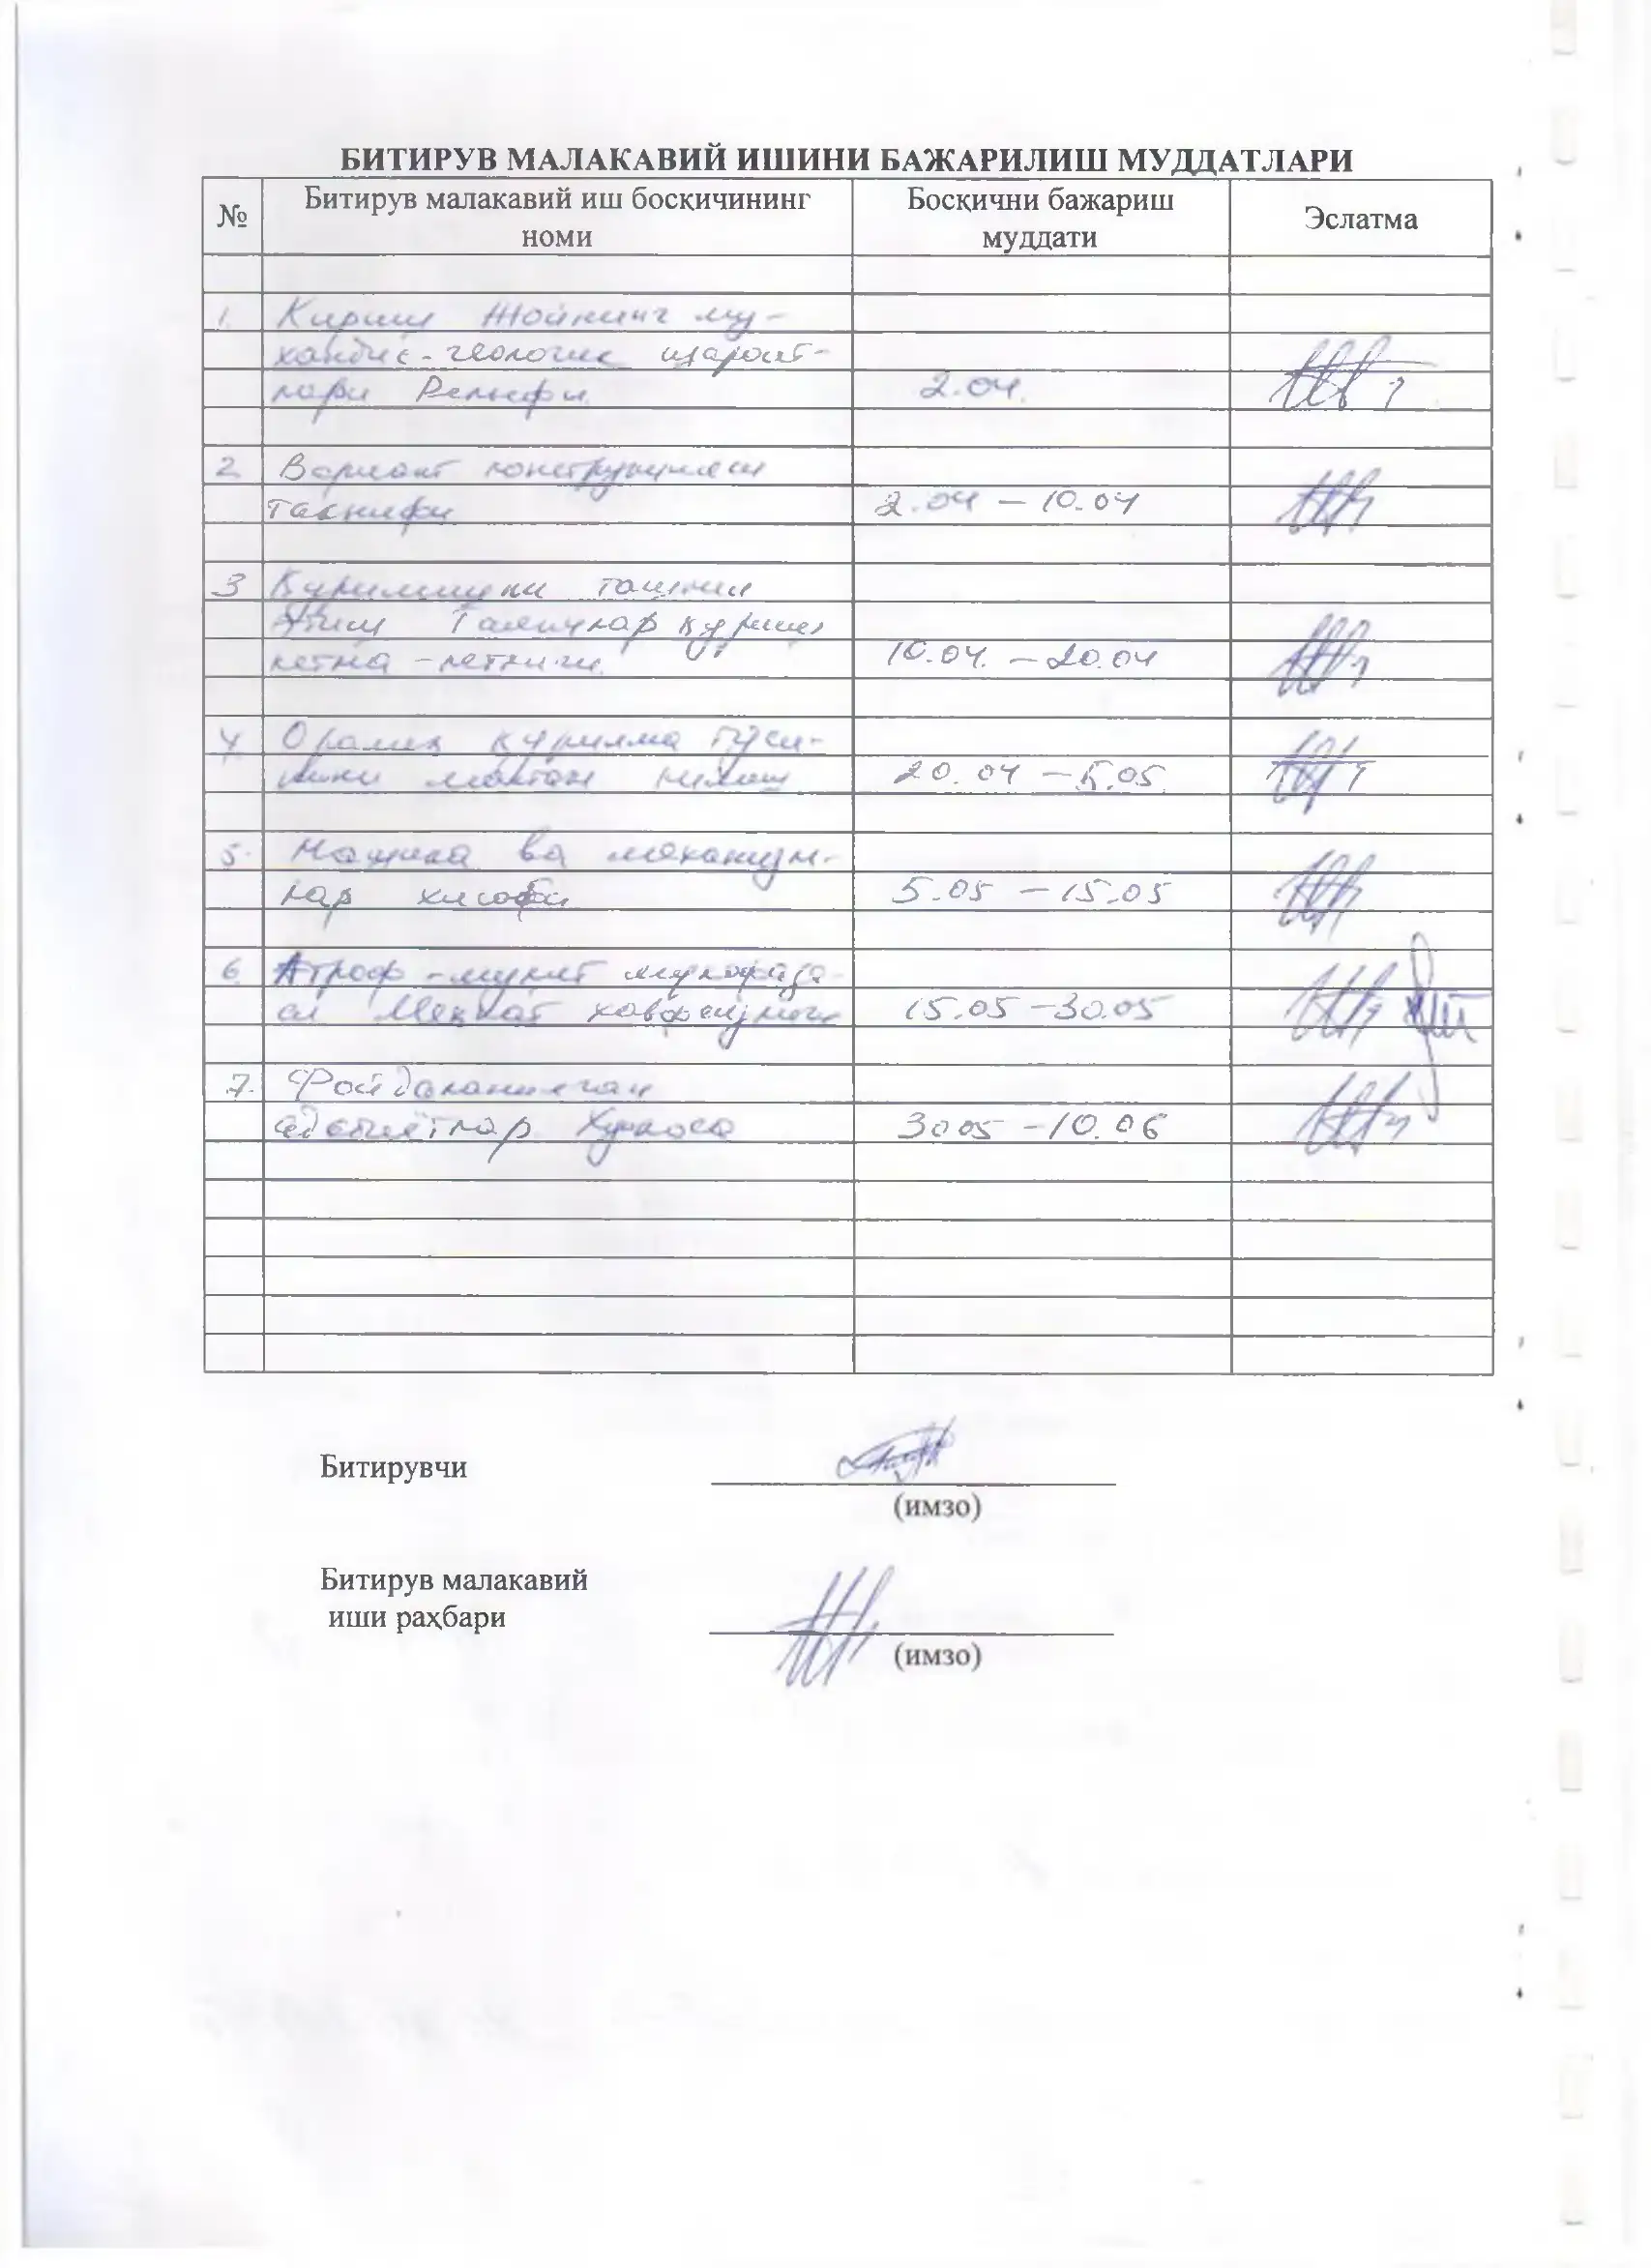 БИТИРУВ МАЛАКАВИЙ ИШИНИ БАЖАРИЛИШ МУДДАТЛАРИ
№ Битирув малакавий иш босқичининг номи Босқични бажариш муддати Эслатма
1. Кириш Жойнинг му-
хандис-геологик шароит-
лари Рельефи 2.04.
2 Вариант конструкцияси
Таснифи 2.04 – 10.04
3 Қурилишни ташкил
Этиш Ташқилар
кетма-кетлиги 10.04. – 20.04
4. Оралиқ қурилма тўси-
қилиш 20.04 – 5.05.
5. Машина ва механизм-
лар хисоби 5.05 – 15.05
6. Атроф-мухит мухофаза-
си Меҳнат хавфсизлиги 15.05 – 30.05
7. Фойдаланилган
адабиётлар Хулоса 30 05 – 10.06
Битирувчи
(имзо)
Битирув малакавий
иши раҳбари
(имзо)